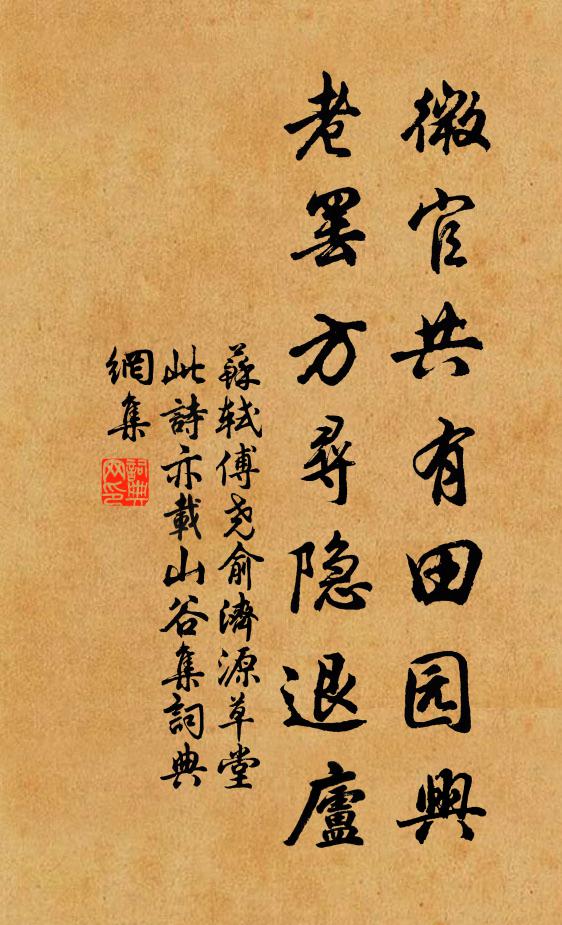 微官共有田园興
老罢方尋隐退廬
蘇轼傅尧俞濟源草堂
此詩亦載山谷集詞典
網集
詞典
网印